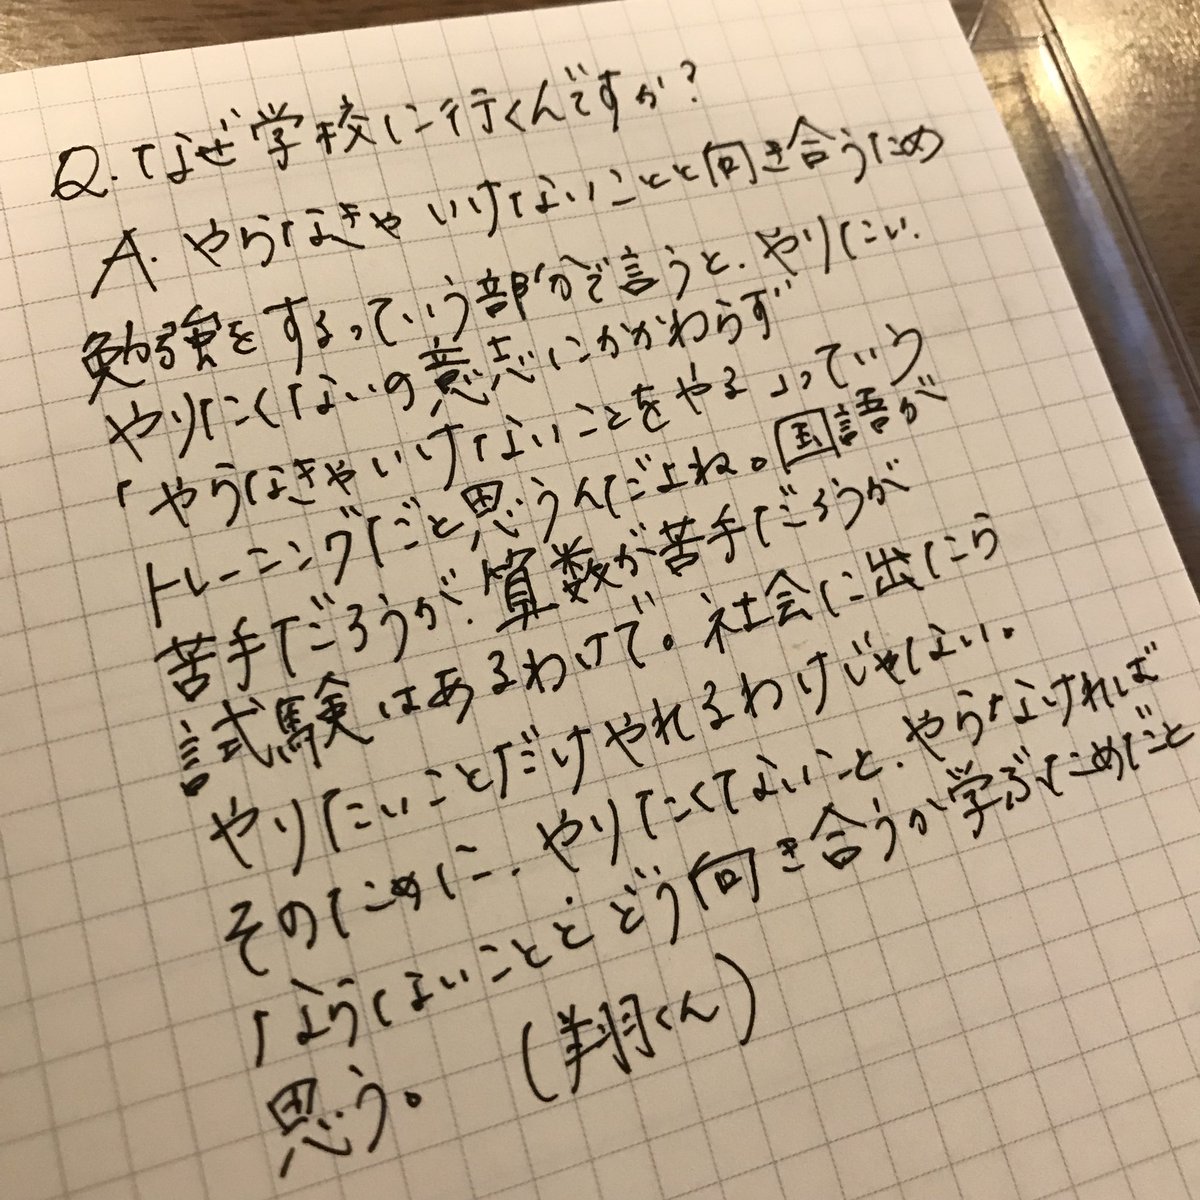 Q. なぜ学校に行くんですか?
A. やらなきゃいけないことと向き合うため
勉強をするっていう部分で言うと、やりたい、
やりたくないの意志にかかわらず
「やらなきゃいけないことをやる」っていう
トレーニングだと思うんだよね。国語が
苦手だろうが、算数が苦手だろうが
試験はあるわけで。社会に出たら
やりたいことだけやれるわけじゃない。
そのために、やりたくてないこと、やらなければ
ならないこととどう向き合うか学ぶためだと
思う。 (翔くん)